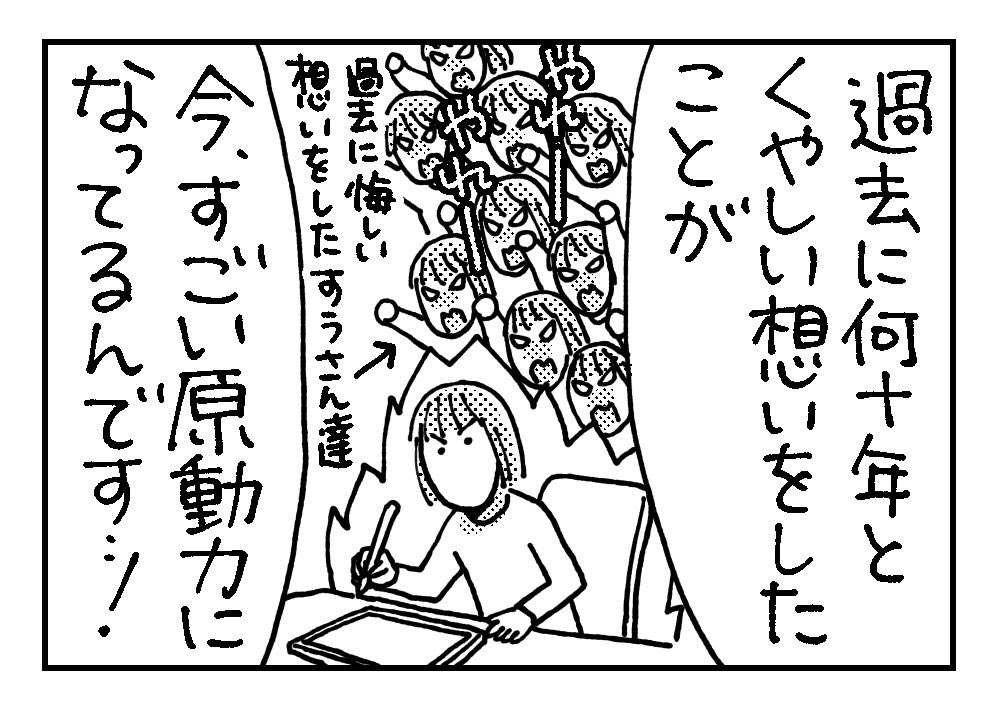 過去に何十年と
くやしい想いをした
ことが
やれ
やれ
過去に悔しい
想いをしたすうさん達
今、すごい原動力に
なってるんですッ!